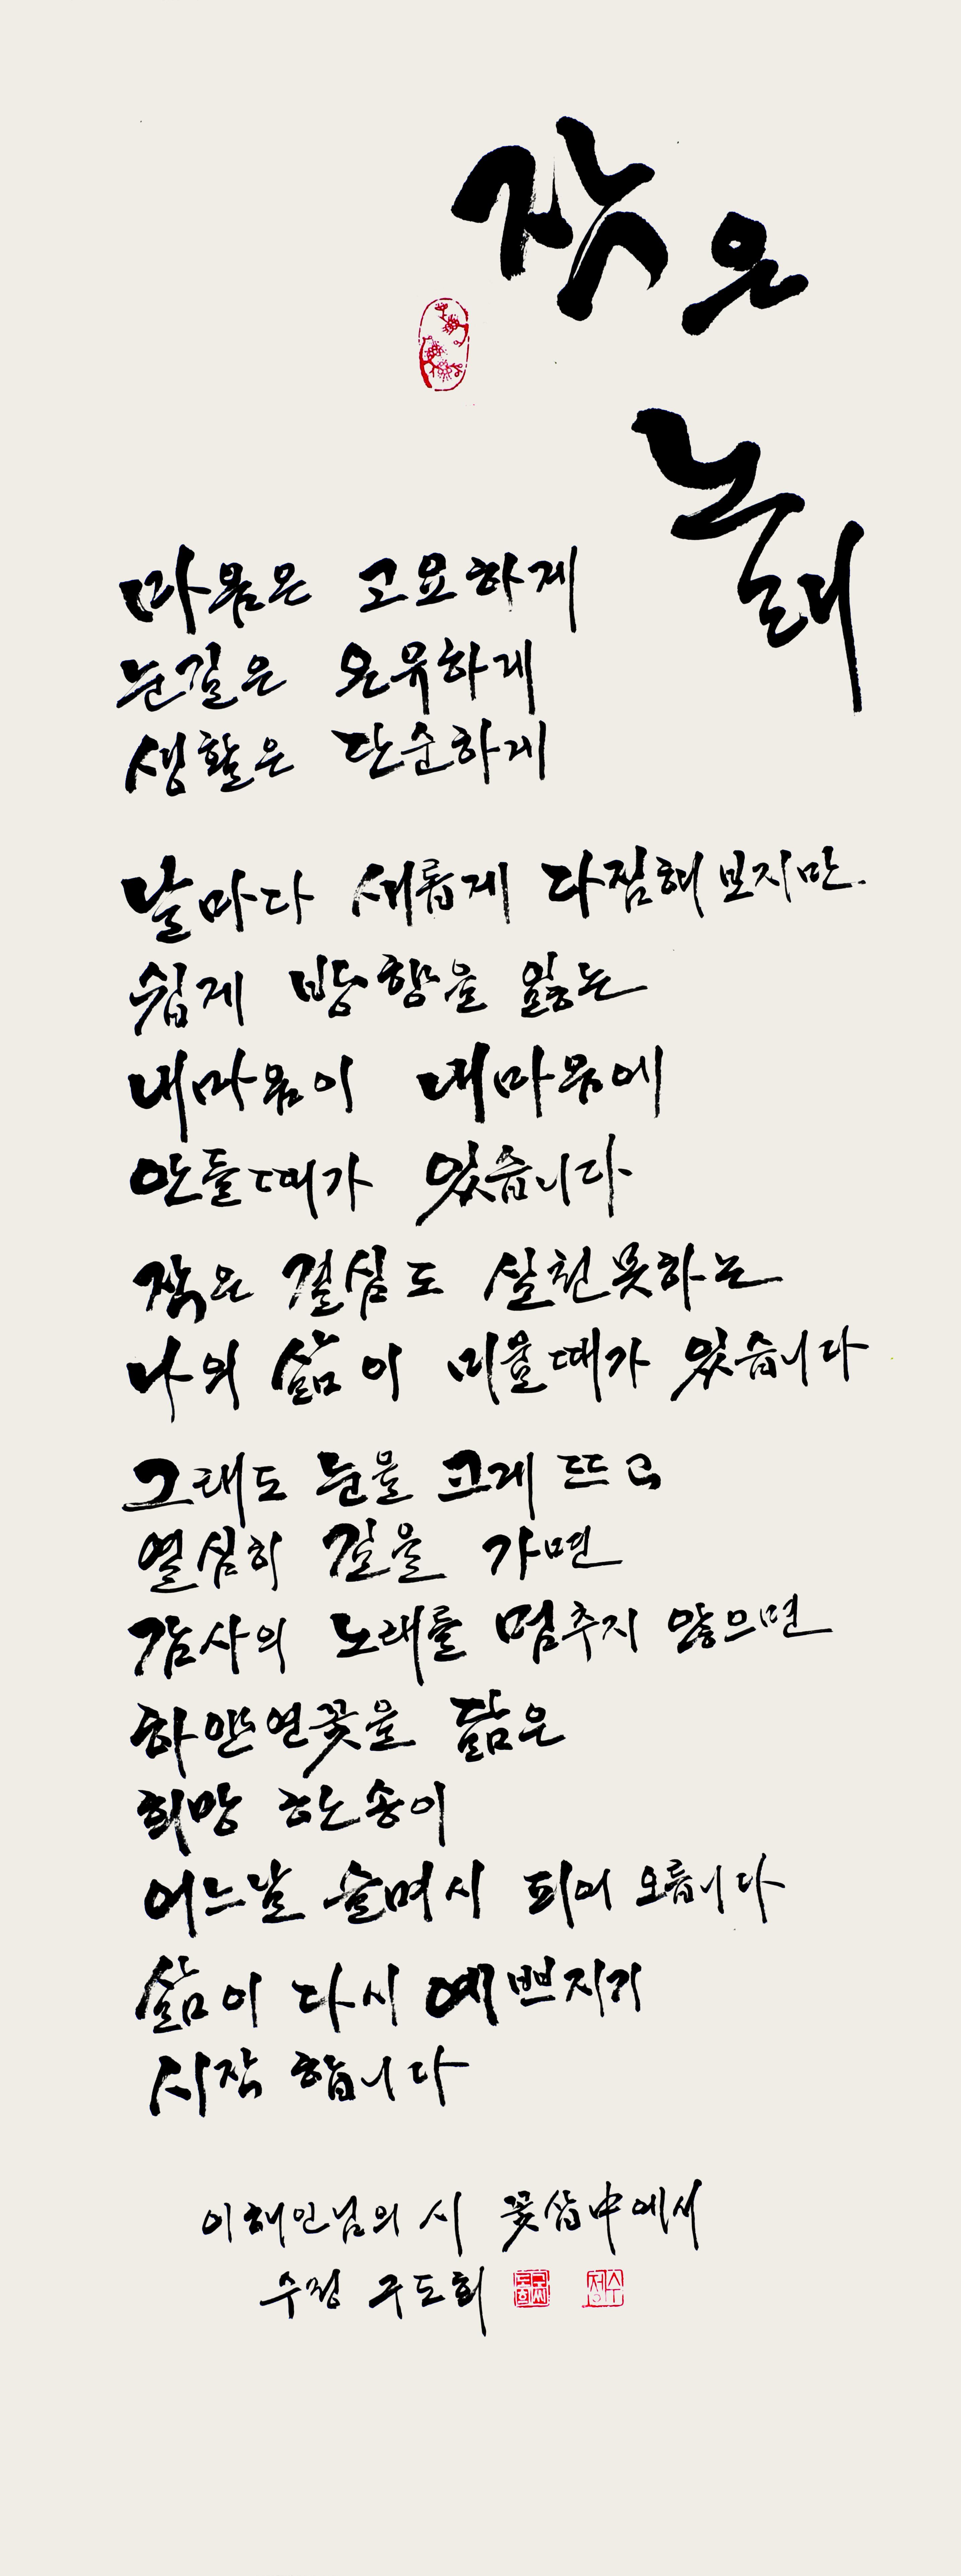 작은
노래
마음은 고요하게
눈길은 온유하게
생활은 단순하게
날마다 새롭게 다짐해보지만
쉽게 방향을 잃는
내마음이 내마음에
안들때가 있습니다
작은 결심도 실천못하는
나의 삶이 미울때가 있습니다
그래도 눈을 크게 뜨고
열심히 길을 가면
감사의 노래를 멈추지 않으면
하얀연꽃을 닮은
희망 한송이
어느날 슬며시 피어 오릅니다
삶이 다시 예쁘지기
시작 합니다
이해인님의 시 꽃삽中에서
수정 구도회